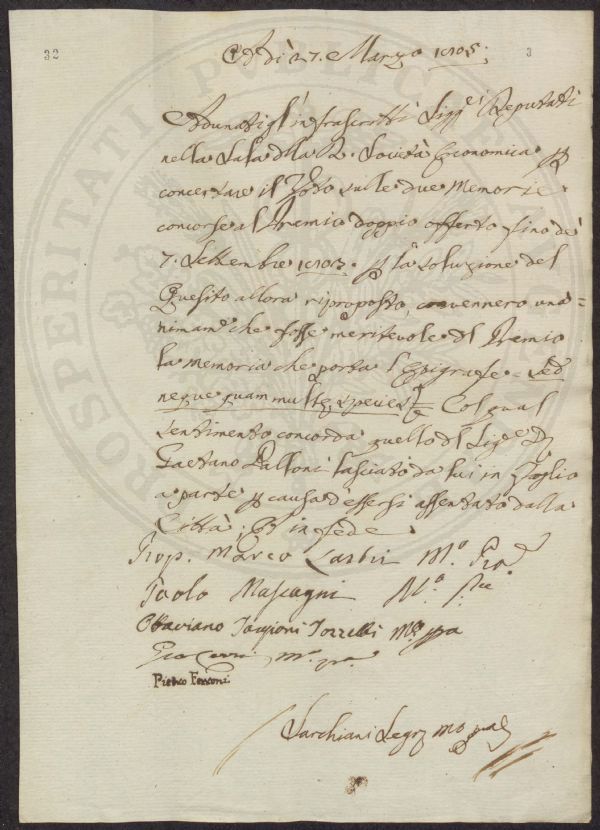 32
3
Adì 27. Marzo 1805.
Adunati gl'infrascritti Sigg.ri Deputati
nella Sala della R. Società Economica p
concertare il Voto sulle due Memorie
concorse al Premio doppio offerto fino de'
7. Settembre 1803. p la soluzione del
Quesito allora riproposto, convennero una=
nimam.e che fosse meritevole del Premio
la memoria che porta l'Epigrafe = Sed
neque quam multæ species &c. Col qual
sentimento concorda quello del Sig.e D.
Gaetano Palloni lasciato da lui in foglio
a parte p causa d'essersi assentato dalla
Città. Et in fede
Prop. Marco Lastri M.o Pra
Paolo Mascagni M.o
Ottaviano Targioni Tozzetti Mo ppa
m.o
Pietro Ferroni
Sarchiani Segr mo pa
PROSPERITATI PUBLICAE